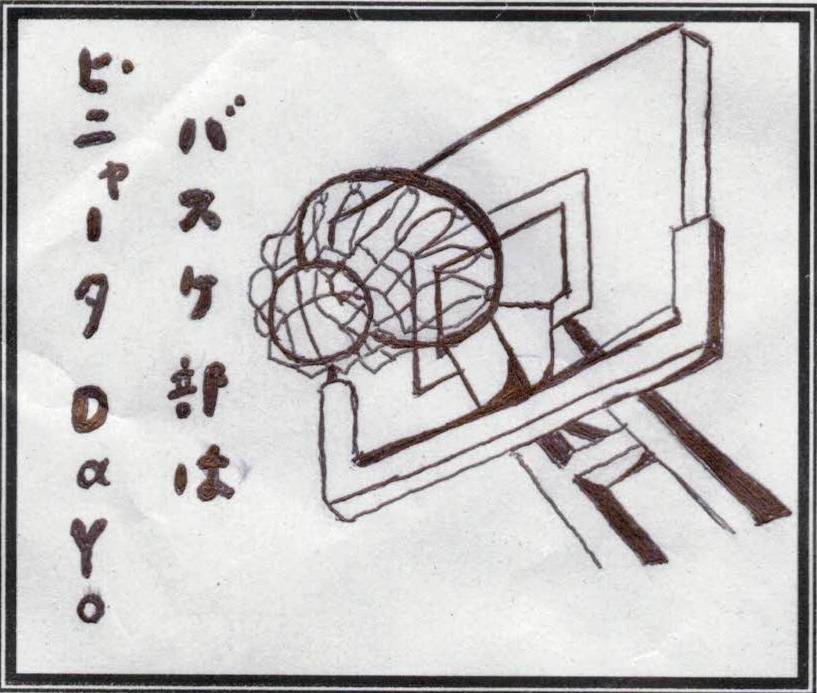 バスケ部は
ピニャータDaYo